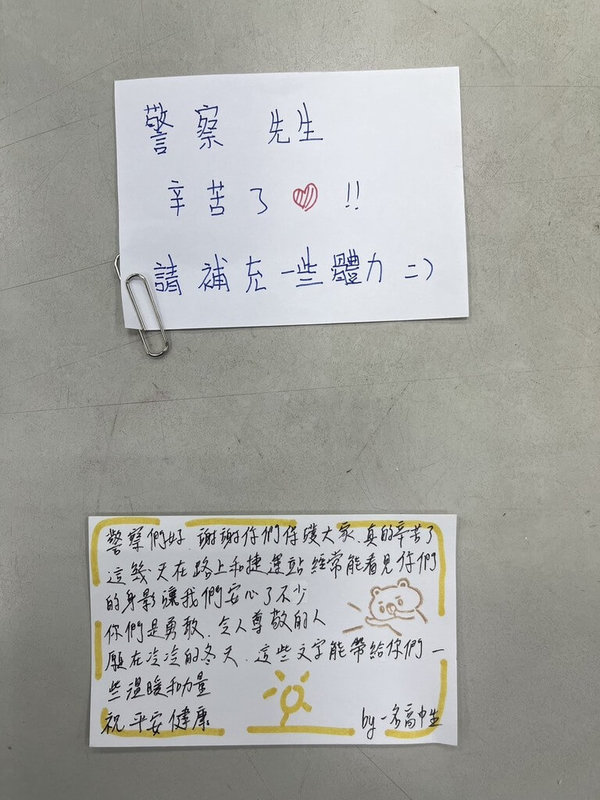 警察 先生
辛苦了 !!
請補充一些體力 =)
警察們好 謝謝你們保護大家、真的辛苦了
這幾天在路上和捷運站經常能看見你們
的身影讓我們安心了不少
你們是勇敢、令人尊敬的人
願在冷冷的冬天、這些文字能帶給你們一
些溫暖和力量
祝平安健康
by 一名高中生